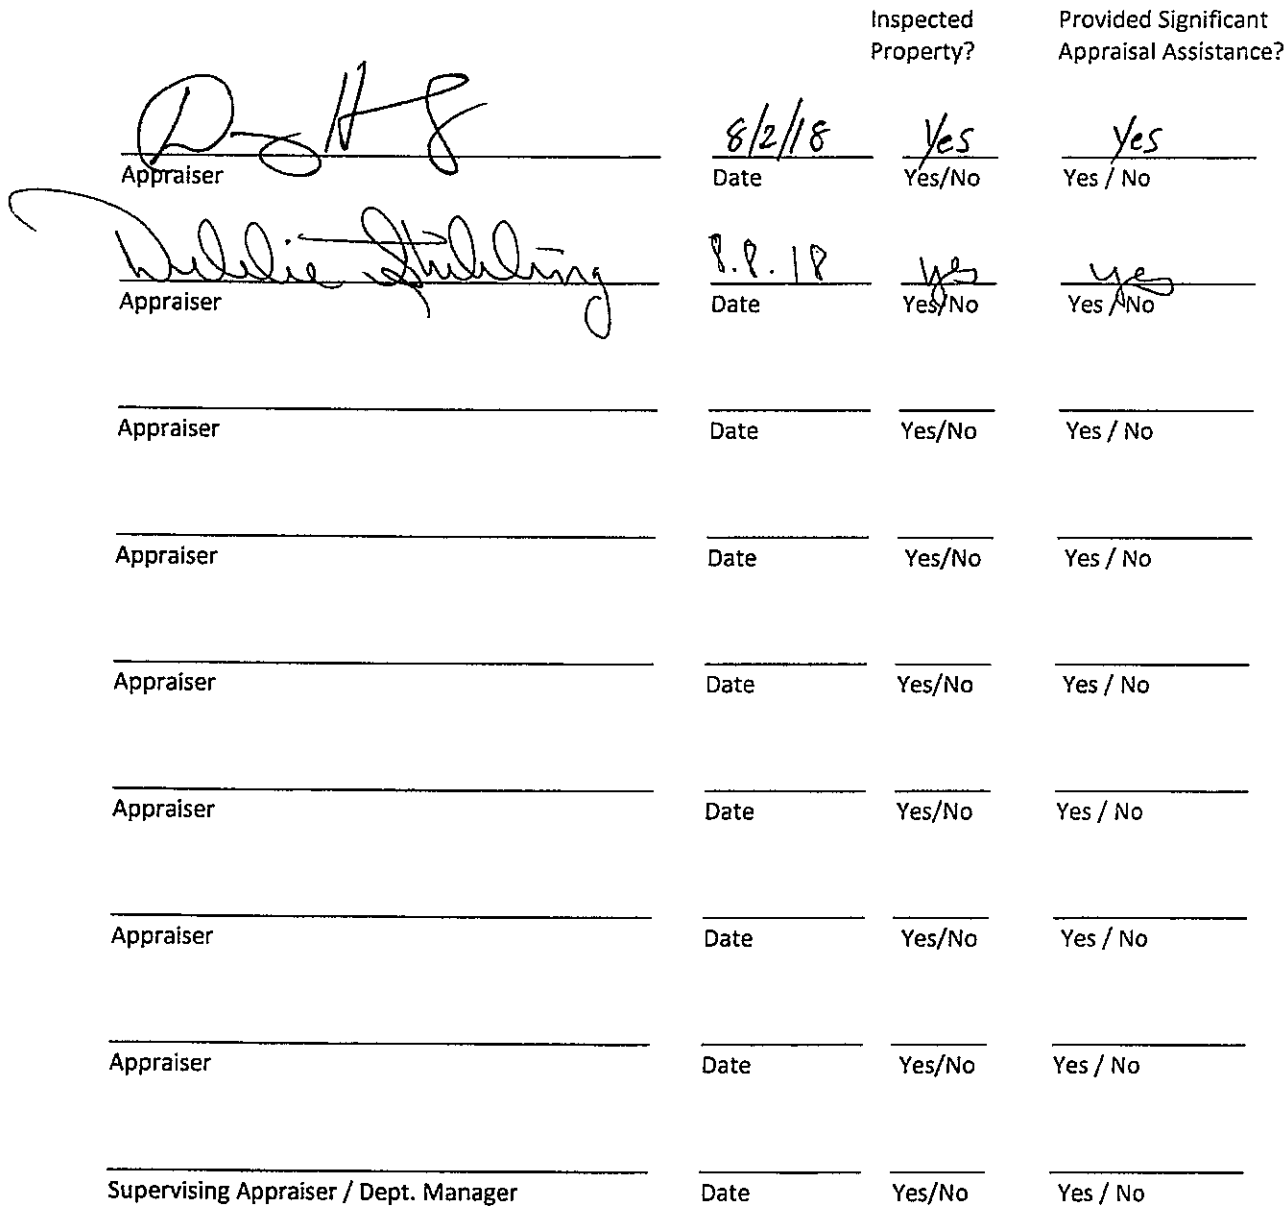 Inspected Provided Significant
Property? Appraisal Assistance?
8/2/18 Yes Yes
Appraiser Date Yes/No Yes / No
Debbie 8.8.18 yes yes
Appraiser Date Yes/No Yes / No
Appraiser Date Yes/No Yes / No
Appraiser Date Yes/No Yes / No
Appraiser Date Yes/No Yes / No
Appraiser Date Yes/No Yes / No
Appraiser Date Yes/No Yes / No
Appraiser Date Yes/No Yes / No
Supervising Appraiser / Dept. Manager Date Yes/No Yes / No